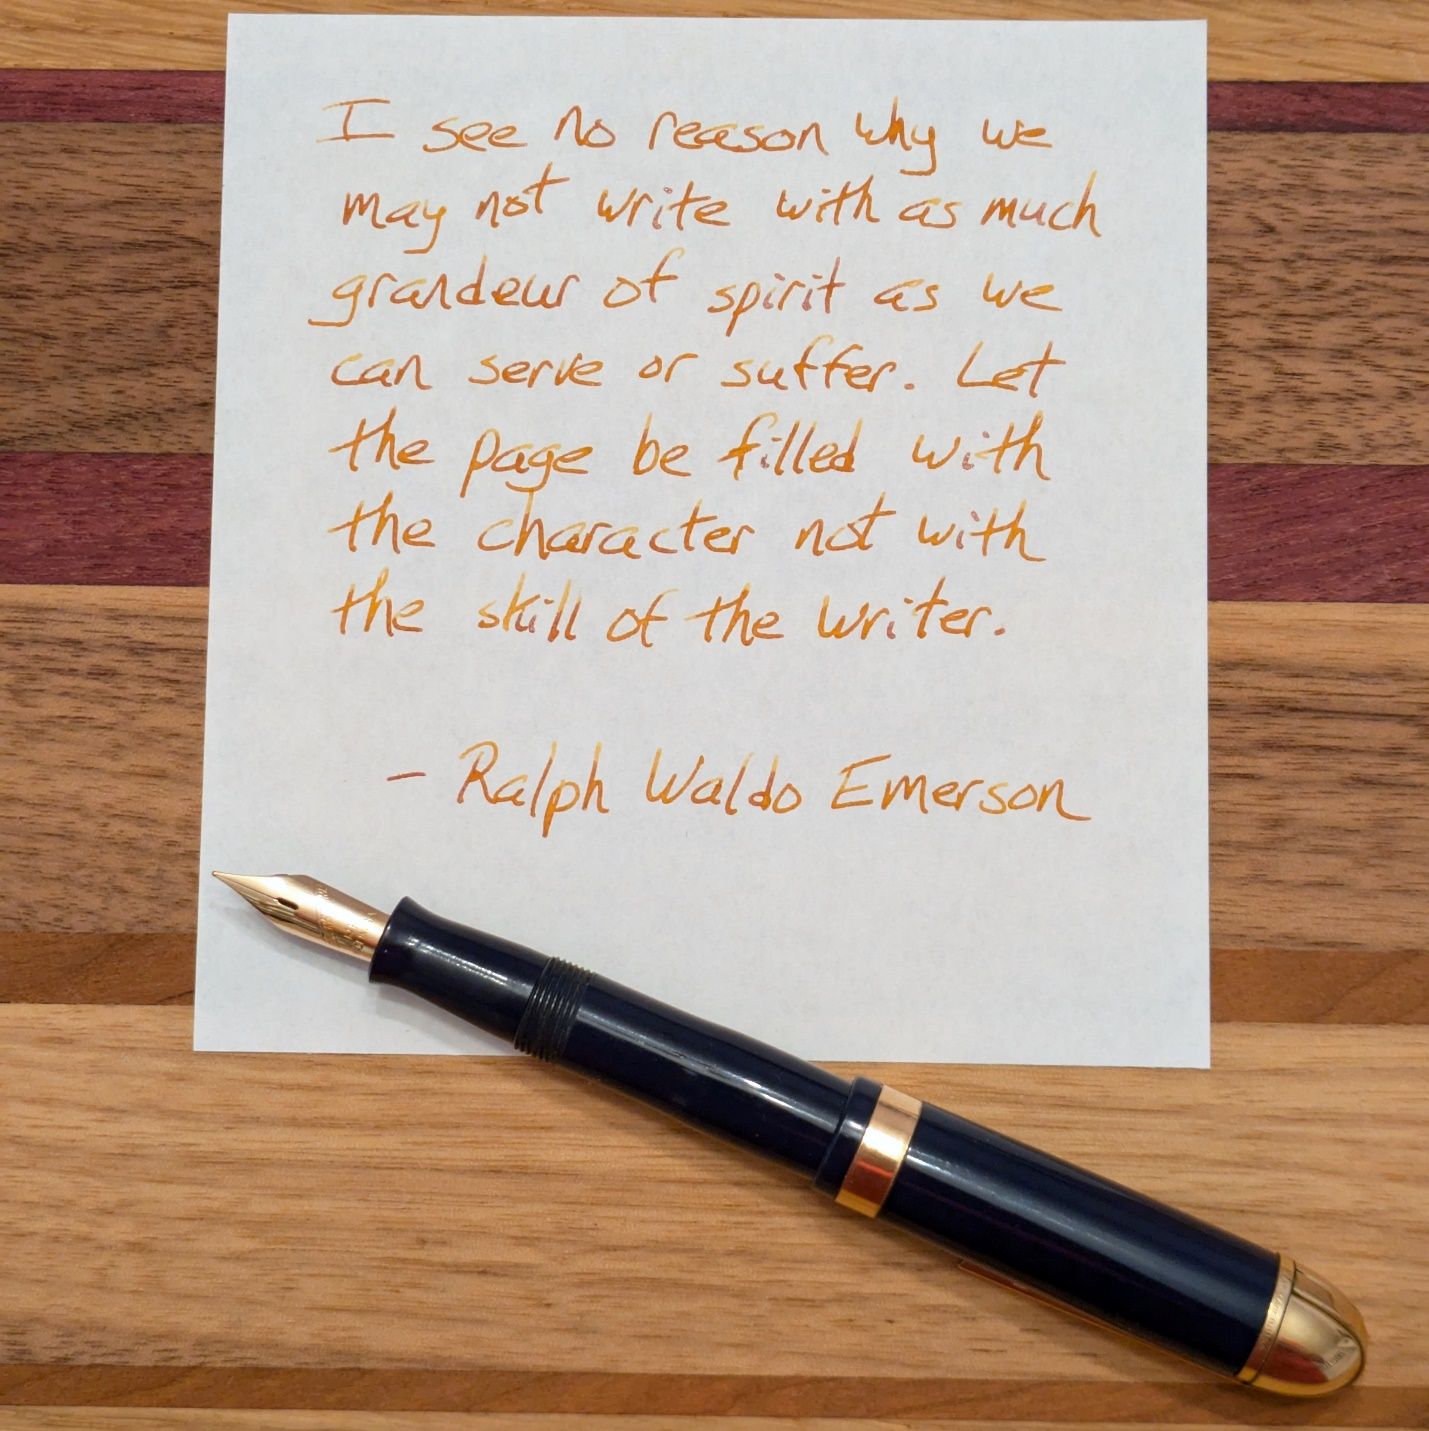 I see no reason why we
may not write with as much
grandeur of spirit as we
can serve or suffer. Let
the page be filled with
the character not with
the skill of the writer.
- Ralph Waldo Emerson